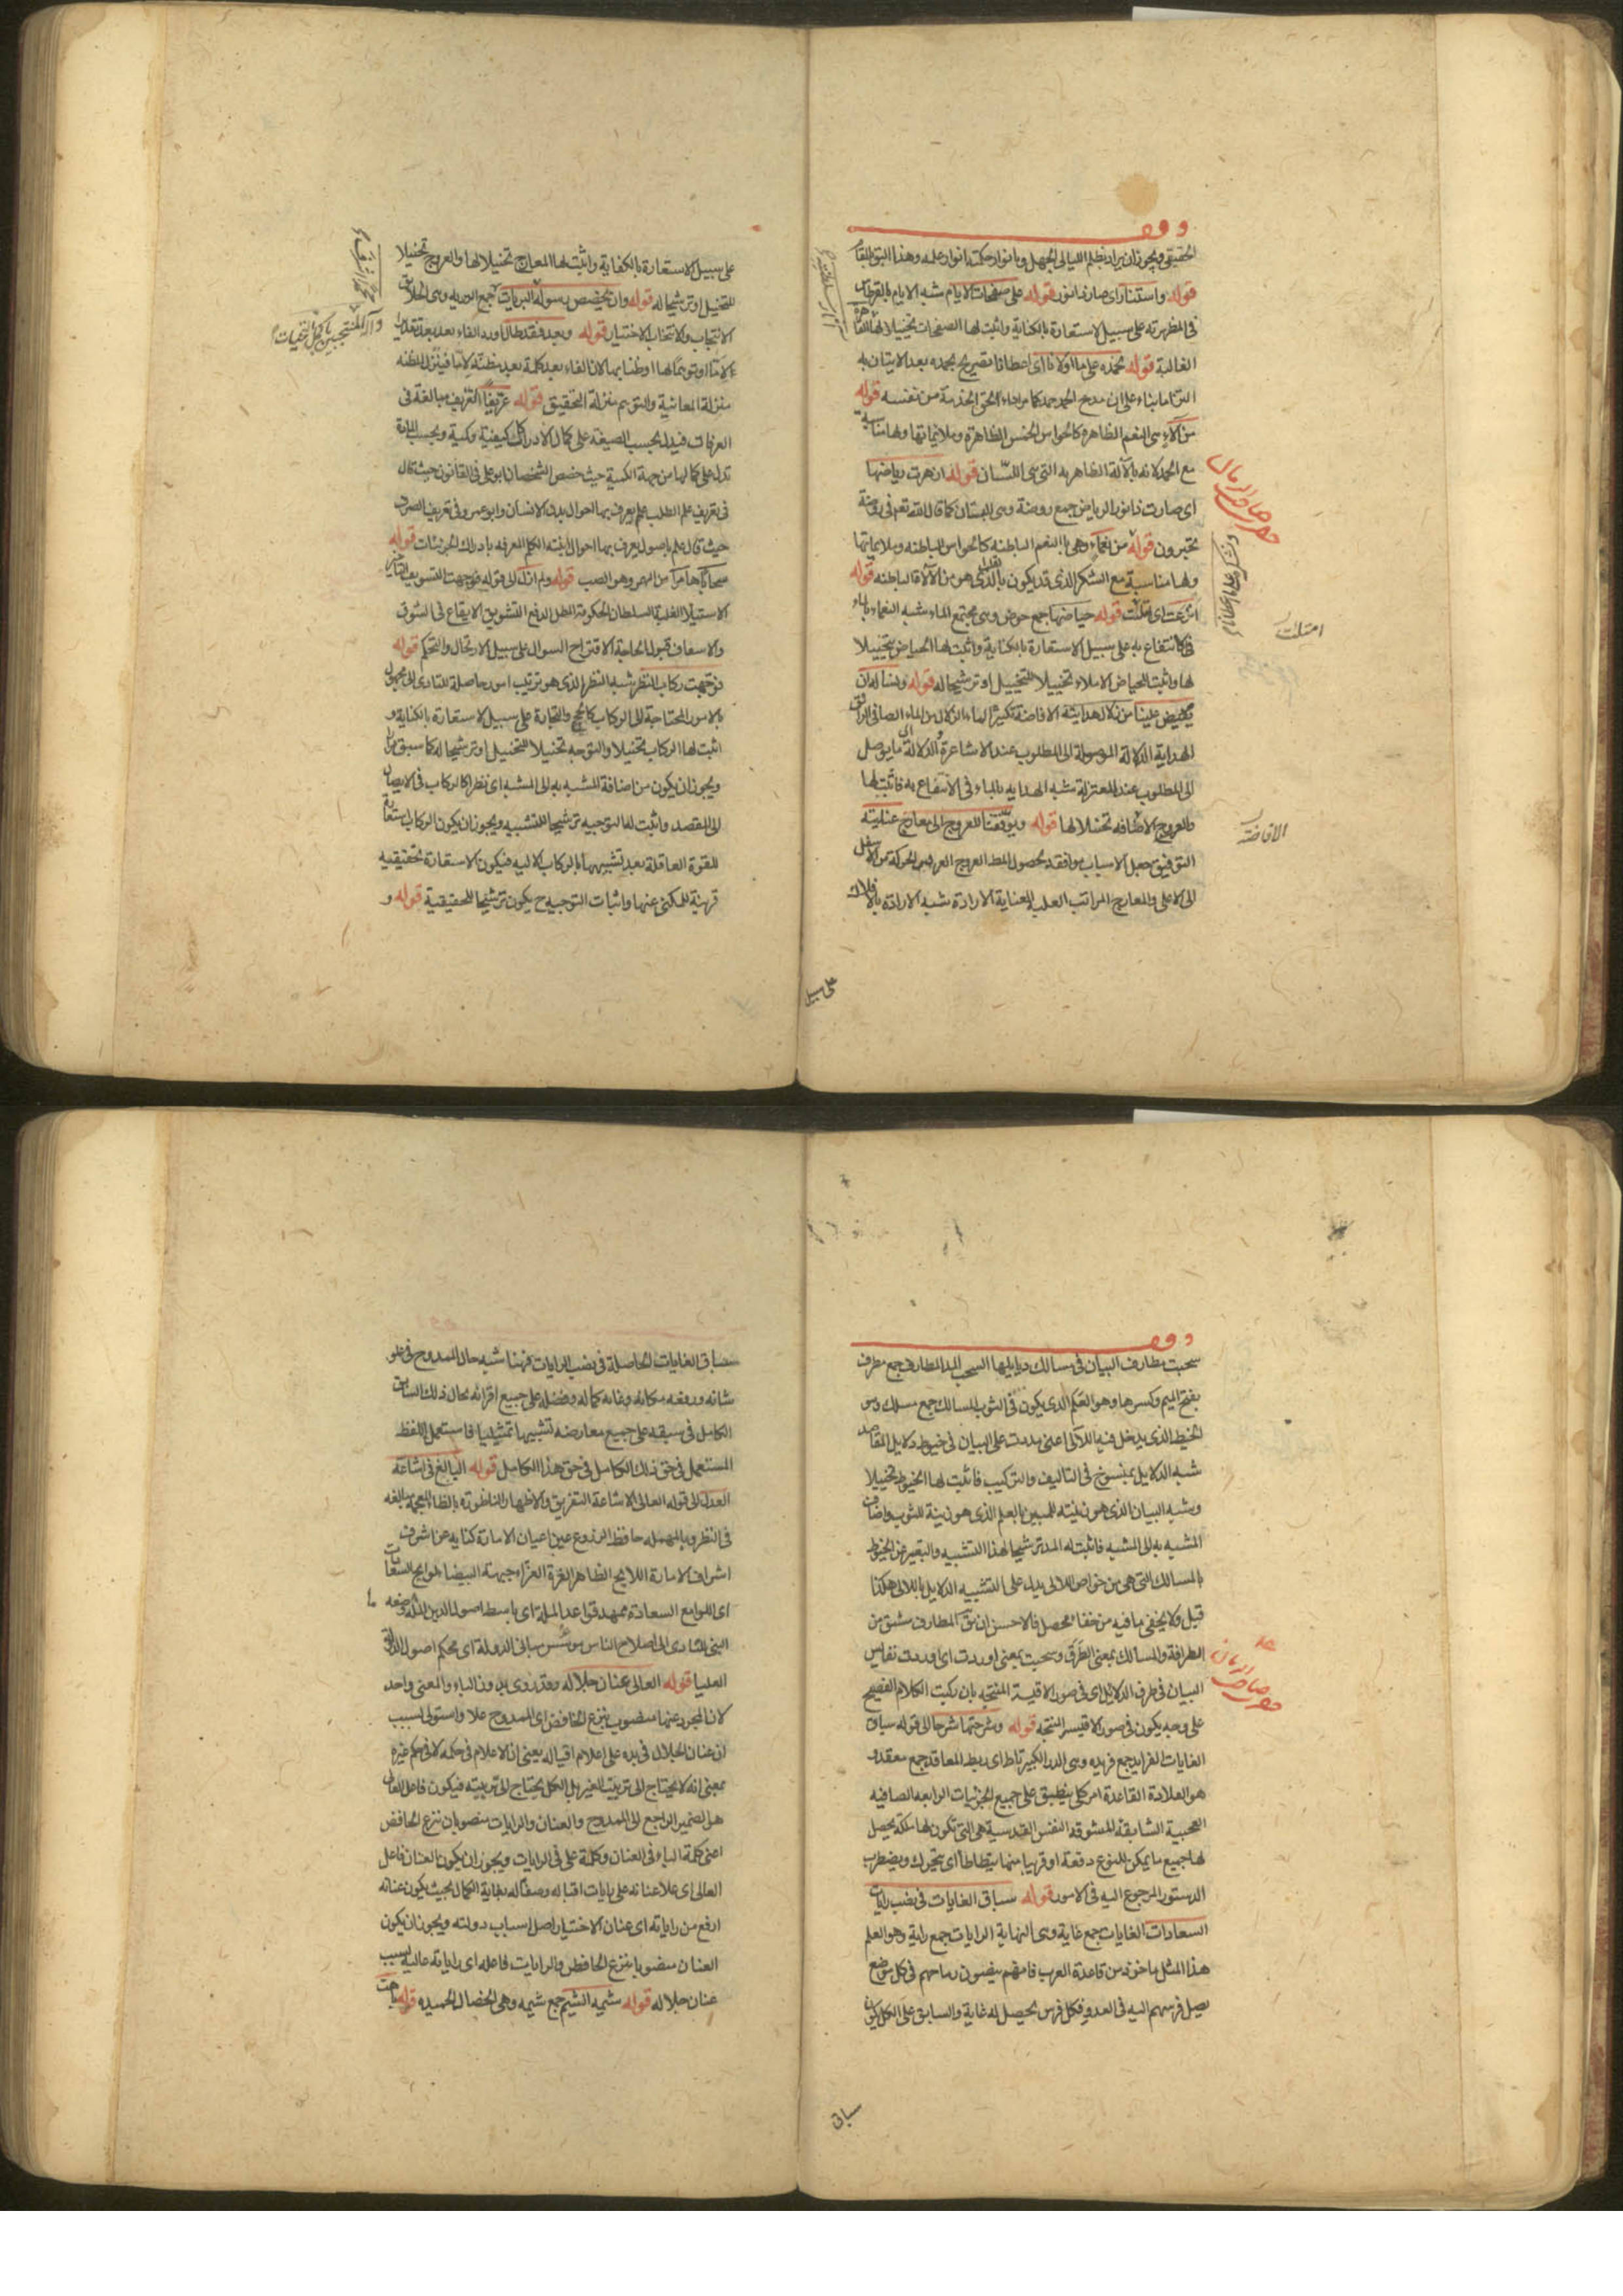 وقف
الحقيقي ويجوز ان يراد بظلم الليالي الجهل وبانوار حكمته انوار علمه وهذا اليق بالمقام
قوله واستنار اى صار ذا نور قوله على صفحات الايام شبه الايام بالقرطاس
فى المظهرية على سبيل الاستعارة بالكناية واثبت لها الصفحات تخييلا لها
الغالبة قوله نحمده على ما اولانا اى اعطانا تصريح بحمده بعد الاتيان به
التزاما بناء على ان مدح الحمد حمد كما مر اداء الحق الخدمة من نفسه قوله
من الآء هى النعم الظاهرة كالحواس الخمس الظاهرة وملائماتها ولها مناسبة
مع الحمد لانه بالآلة الظاهرية التى هى اللسان قوله ازهرت رياضها
اى صارت ذا نور الرياض جمع روضة وهى البستان كما قال الله تعالى فى روضة
يحبرون قوله من نعماء وهى النعم الباطنه كالحواس الباطنه وملايماتها
ولها مناسبة مع الشكر الذى قد يكون بالقلب الذى هو من الآلة الباطنه قوله
اترعت اى ملئت قوله حياضها جمع حوض وهى مجتمع الماء شبه النعماء بالماء
فى الانتفاع به على سبيل الاستعارة بالكناية واثبت لها الحياض تخييلا
لها واثبت للحياض الاملاء تخييلا للتخييل او ترشيحا له قوله ونسأله ان
يفيض علينا من زلال هدايته الافاضة تكثير الماء الزلال الماء الصافى
الهداية الدلالة الموصولة الى المطلوب عند الاشاعرة والدلالة الى ما يوصل
الى المطلوب عند المعتزلة شبه الهدايه بالماء فى الانتفاع به فاثبت لها
قوله ويوفقنا للعروج الى معارج عنايته
التوفيق جعل الاسباب موافقه لحصول المط العروج العروض الحركة من الاسفل
الى الاعلى والمعارج المراتب العلية العناية الارادة شبه الارادة بالافلاك
امتلئت
الافاضة
على سبيل
على سبيل الاستعارة بالكناية واثبت لها المعارج تخييلا لها والعروج تخييلا
للتخييل او ترشيحا له قوله وان يخصص رسوله البريات جمع البريه وهى الخلائق
الانتجاب والانتخاب الاختيار قوله وبعد فقد طال اورد الفاء بعد بعد تقدير
لاما او توهما لها او ظنا بها لان الفاء بعد كلمة بعد مظنة لاما فينزل المظنه
منزلة المعاينية والتوهم منزلة التحقيق قوله عريفا التعريف مبالغة فى
العرفان فيدل بحسب الصيغة على كمال الادراك كيفية وكمية وبحسب المادة
تدل على كمالها من جهة الكمية حيث خصص الشخصان ابو على فى القانون حيث قال
فى تعريف علم الطلب علم يعرف بها احوال بدن الانسان وابو عمرو فى تعريف الصرف
حيث قال علم باصول يعرف بها احوال ابنية الكلم المعرفه بادراك الجزئيات قوله
الاستيلاء الغلبة السلطان الحكومة المطل الدفع التشويق الايقاع فى الشوق
والاسعاف قبول الحاجة الاقتراح السوال على سبيل الارتجال والتحكم قوله
توجهت ركاب النظر شبه النظر الذى هو ترتيب امور حاصلة للتادى الى مجهول
بالامور المحتاجة الى الركاب كالحج والتجارة على سبيل الاستعارة بالكناية و
اثبت لها الركاب تخييلا والتوجه تخييلا للتخييل او ترشيحا له كما سبق
ويجوز ان يكون من اضافة المشبه به الى المشبه اى نظرا كالركاب فى الايصال
الى المقصد واثبت له التوجيه ترشيحا للتشبيه ويجوز ان يكون الركاب استعارة
للقوة العاقلة بعد تشبيهها بالركاب الالية فيكون الاستعارة تحقيقيه
قرينة للمكنى عنها واثبات التوجيه ح يكون ترشيحا للحقيقية قوله و
وقف
سحبت مطارف البيان فى مسالك دلايلها السحب المد المطارف جمع مطرف
بفتح الميم وكسرها وهو العلم الذى يكون فى الثوب المسالك جمع مسلك وهو
الخيط الذى يدخل فيه اللآلى اعنى مددت على البيان فى خيوط دلايل المقاصد
شبه الدلايل بمنسوخ فى التاليف والتركيب فاثبت لها الخيوط تخييلا
وشبه البيان الذى هو زينة للمبين بالعلم الذى هو زينة للثوب واضاف
المشبه به الى المشبه فاثبت له المد ترشيحا لهذا التشبيه والتعبير عن الخيوط
بالمسالك التى هى من خواص اللالى يدل على التشبيه الدلايل باللالى هكذا
قيل ولا يخفى ما فيه من خفاء محصل فالاحسن ان يق المطارف مشتق من
الطرافة والمسالك بمعنى الطرق وسحبت بمعنى اوردت اى اوردت نفايس
البيان فى طرق الدلايل اى فى صور الاقيسة المنتجه بان ركبت الكلام الفصيح
على وجه يكون فى صور الاقيسه المنتجه قوله وشرحتها شرحا الى قوله سباق
الغايات الفرايد جمع فريده وهى الدر الكبير تاط اى ربط المعاقد جمع معقد و
هو العلادة القاعدة امر كلى ينطبق على جميع الجزئيات الرابعه الصافيه
العجبية الشايقة المشوقه النفس القدسية هى التى تكون لها ملكة يحصل
لها جميع ما يمكن للنوع دفعة او قريبا منها يتطاطأ اى يتحرك ويضطرب
الدستور المرجوع اليه فى الامور قوله سباق الغايات فى نصب رايات
السعادات الغايات جمع غاية وهى النهاية الرايات جمع راية وهو العلم
هذا المثل ماخوذ من قاعدة العرب فانهم ينصبون رماحهم فى كل موضع
يصل فرسهم اليه فى العدو فكل فرس يحصل له غاية والسابق على الكل يكون
سباق
سباق الغايات الحاصلة فى نصب الرايات فهنا شبه حال الممدوح فى علو
شانه ورفعه مكانه وغاية كماله وفضله على جميع اقرانه بحال ذلك السابق
الكامل فى سبقه على جميع معارضه تشبيها تمثيليا فاستعمل اللفظ
المستعمل فى حق ذلك الكامل فى حق هذا الكامل قوله البالغ فى اشاعة
العدل الى قوله العالى الاشاعة التفريق والاظهار الناظورة بالظاء المعجمة مبالغه
فى النظر وبالمهمله حافظ الزروع عين اعيان الامارة كناية عن اشرف
اشراف الامارة اللايح الظاهر الغرة الغراء جبهته البيضاء لوايح السعادات
اى اللوامع السعادة ممهد قواعد الملة اى باسط اصول الدين
النبى المتادى الى اصلاح الناس موسس مبانى الدولة اى محكم اصول الدولة
العليا قوله العالى عنان جلاله وقد روى بدون الباء والمعنى واحد
لان المجرد عنها منصوب بنزع الخافض اى الممدوح علا واستولى بسبب
ان عنان الجلال فى يده على اعلام اقباله يعنى ان الاعلام فى حكمه لا فى حكم غيره
بمعنى انه لا يحتاج الى تربيت الغير بل الكل يحتاج الى تربيته فيكون فاعل العالى
هو الضمير الراجع الى الممدوح والعنان والرايات منصوبان بنزع الخافض
اعنى كلمة الباء فى العنان وكلمة على فى الرايات ويجوز ان يكون العنان فاعل
العالى اى علا عنانه على رايات اقباله وصفا له بغاية الكمال بحيث يكون عنانه
ارفع من راياته اى عنان الاختيار اصل اسباب دولته ويجوز ان يكون
العنان منصوبا بنزع الخافض والرايات فاعله اى راياته عالية بسبب
عنان جلاله قوله شيمه الشيم جمع شيمه وهى الخصال الحميده قوله باهت